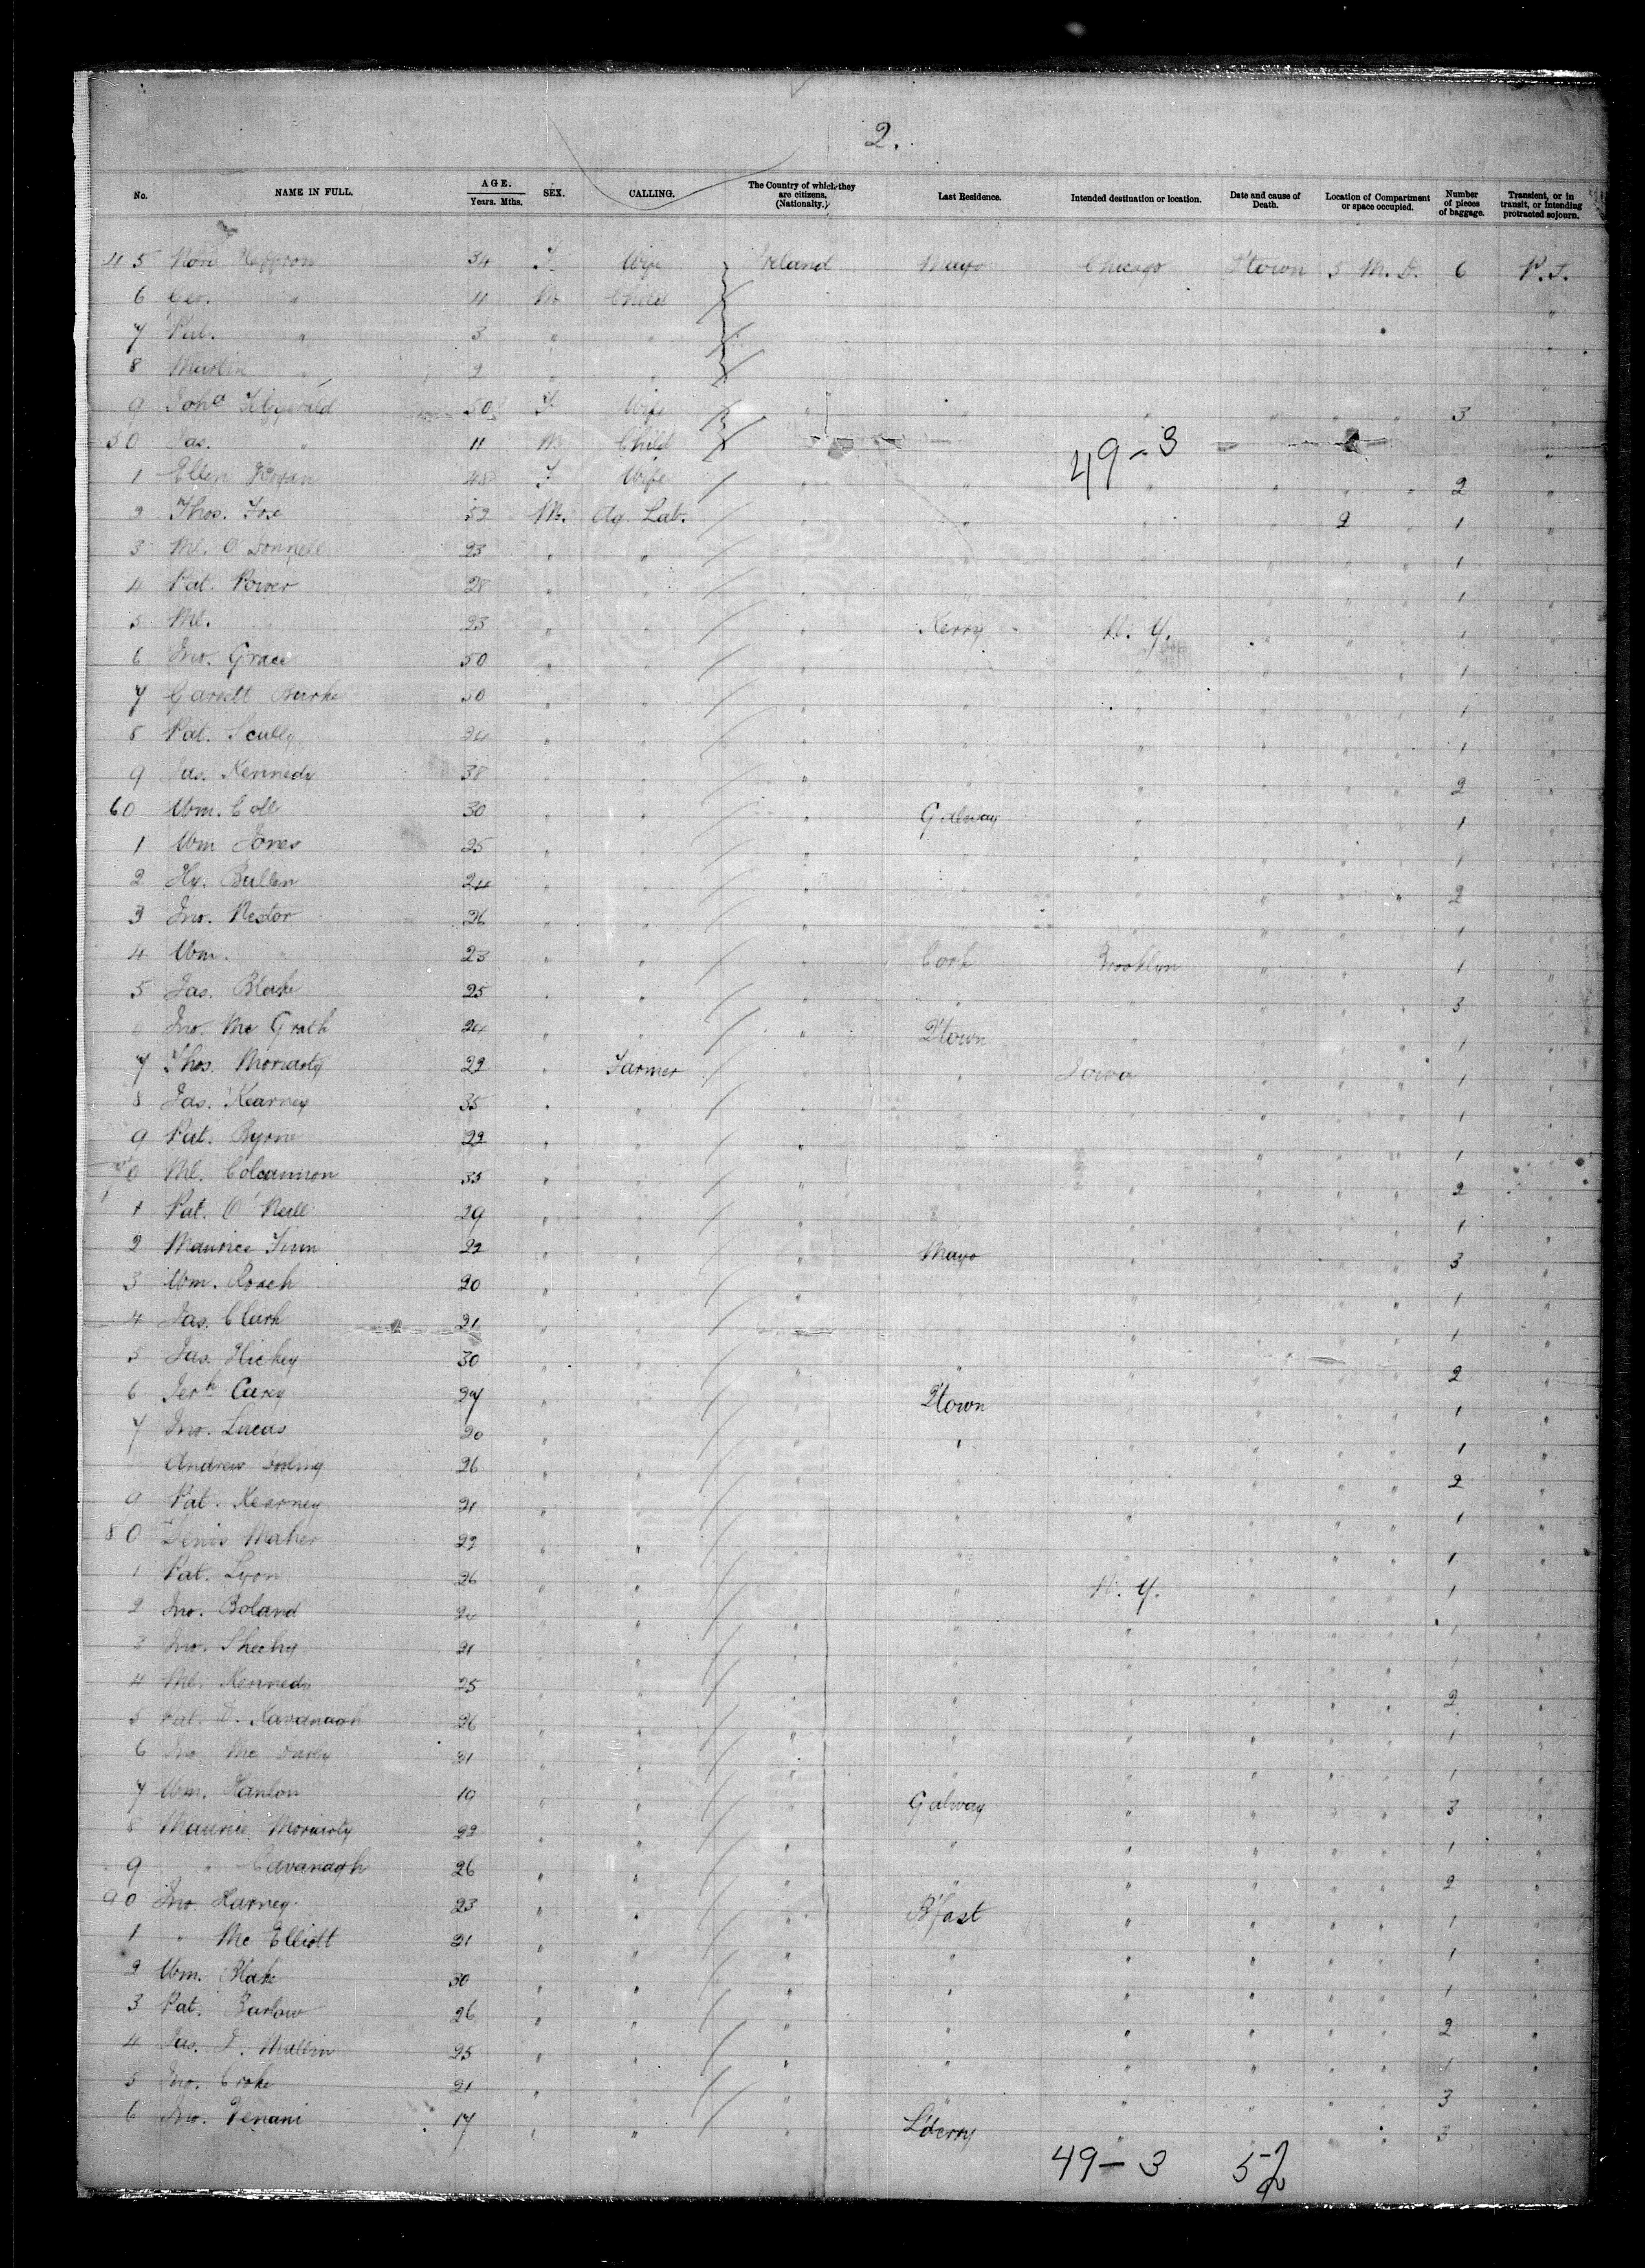 2.
No. NAME IN FULL. AGE. Years. Mths. SEX. CALLING. The Country of which they are citizens. (Nationalty.) Last Residence. Intended destination or location. Date and cause of Death. Location of Compartment or space occupied. Number of pieces of baggage. Transient, or in transit, or intending protracted sojourn.
45 Heffron 34 F Wife Ireland Mayo Chicago Q'town 5 M. D. 6 P. S.
6 Geo. " 4 M. Child "
7 Pat. " 3 " " "
8 Martin " 2 " " "
9 Joha Fitzgerald 50 F Wife " " " " " " " 3 "
50 Jas. " 11 M Child "
49-3
1 Ellen Hogan 48 F Wife " " " " " " 2 "
2 Thos. Fox 52 M. Ag. Lab. " " " " 2 " 1 "
3 Ml. O'Donnell 23 " " " " " " " " 1 "
4 Pat. Power 28 " " " " " " " " 1 "
5 Ml. " 23 " " " Kerry N. Y. " " " 1 "
6 Jno. Grace 50 " " " " " " " " 1 "
7 Garrett Burke 50 " " " " " " " " 1 "
8 Pat. Scully 24 " " " " " " " " 1 "
9 Jas. Kennedy 38 " " " " " " " " 2 "
60 Wm. Coll 30 " " " Galway " " " " 1 "
1 Wm Jones 25 " " " " " " " " 1 "
2 Hy. Bullen 24 " " " " " " " " 2 "
3 Jno. Nestor 26 " " " " " " " " 1 "
4 Wm. " 23 " " " Cork Brooklyn " " " 1 "
5 Jas. Blake 25 " " " " " " " " 3 "
6 Jno. Mc Grath 24 " " " Q'town " " " " 1 "
7 Thos. Moriarty 22 " Farmer " " Iowa " " " 1 "
8 Jas. Kearney 35 " " " " " " " " 1 "
9 Pat. Byrne 22 " " " " " " " " 1 "
70 Ml. Colcannon 35 " " " " " " " " 2 "
1 Pat. O'Neill 29 " " " " " " " " 1 "
2 Maurice Finn 22 " " " Mayo " " " " 3 "
3 Wm. Roach 20 " " " " " " " " 1 "
4 Jas. Clark 21 " " " " " " " " 1 "
5 Jas. Hickey 30 " " " " " " " " 2 "
6 Jerh Carey 27 " " " Q'town " " " " 1 "
7 Jno. Lucas 20 " " " " " " " " 1 "
Andrew 26 " " " " " " " " 2 "
9 Pat. Kearney 21 " " " " " " " " 1 "
80 Denis Maher 22 " " " " " " " " 1 "
1 Pat. Lyon 26 " " " " N. Y. " " " 1 "
2 Jno. Boland " " " " " " " " 1 "
3 Jno. Sheehy 21 " " " " " " " " 1 "
4 Ml. Kennedy 25 " " " " " " " " 2 "
5 Pat. D. Kavanagh 26 " " " " " " " " 1 "
6 Jno. Mc 21 " " " " " " " " 1 "
7 Wm. Hanlon 19 " " " Galway " " " " 3 "
8 Maurice Moriarty 22 " " " " " " " " 1 "
9 " Cavanagh 26 " " " " " " " " 2 "
90 Jno. Harney 23 " " " B'fast " " " " 1 "
1 " Mc Elliott 21 " " " " " " " " 1 "
2 Wm. Blake 30 " " " " " " " " 1 "
3 Pat. Barlow 26 " " " " " " " " 2 "
4 Jas. D. Mullin 25 " " " " " " " " 1 "
5 Jno. Croke 21 " " " " " " " " 3 "
6 Jno. 17 " " " L'derry " " " " 3 "
49-3 52